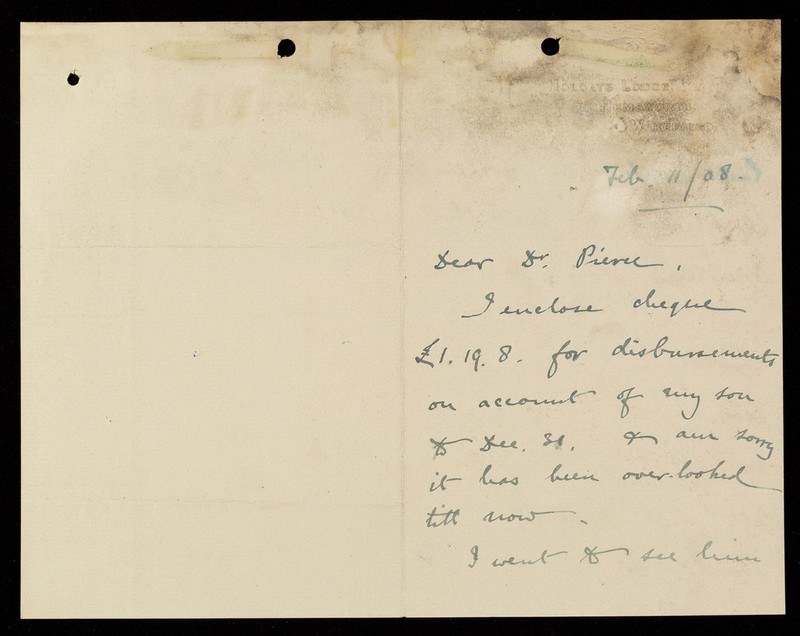 Holgate Lodge,
Hemsworth,
Wakefield.
Feb. 11/08.
Dear Dr. Pierce,
I enclose cheque
£1. 19. 8. for disbursements
on account of my son
to Dec. 31. & am sorry
it has been over-looked
till now.
I went to see him